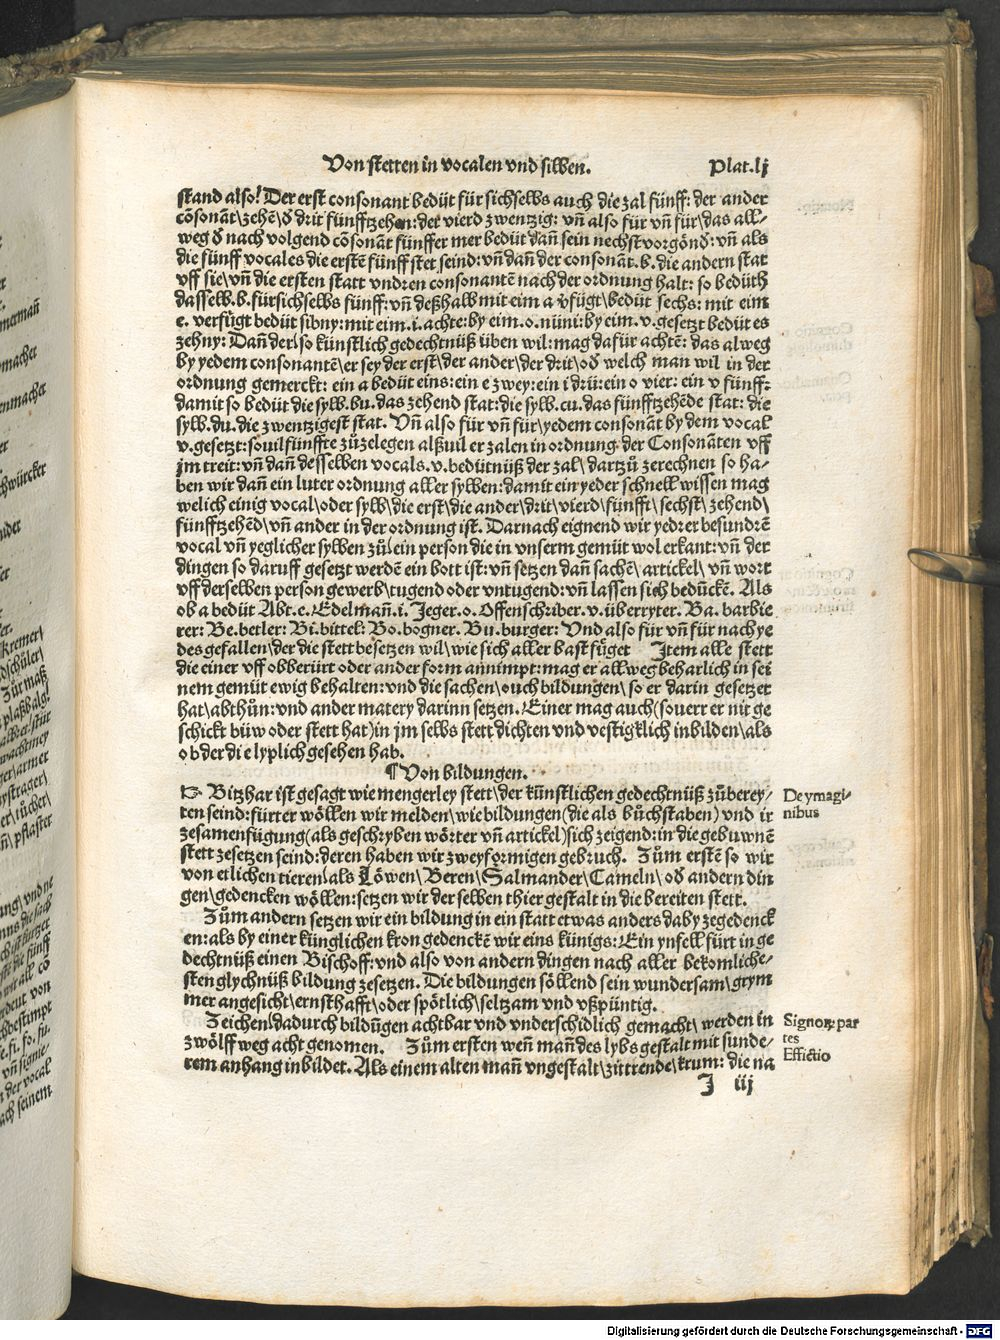 Von stetten in vocalen vnd silben.
Plat.lj
stand also! Der erst consonant bedüt für sichselbs auch die zal fünff: der ander
cõsonãt\zehẽ\ð drit fünfftzehen: der vierd zwentzig: vñ also für vñ für\das all-
weg ð nach volgend cõsonãt fünffer mer bedüt dañ sein nechst vorgõnð: vñ als
die fünff vocales die erstẽ fünff stet seind: vñ dañ der consonãt.b.die andern stat
vff sie\vñ die ersten statt vndren consonantẽ nach der ordnung halt: so bedüth
dasselb.b.fürsichselbs fünff: vñ deßhalb mit eim a v̈fügt\bedüt sechs: mit eim
e. verfügt bedüt sibny: mit eim.i.achte: by eim.o.nüni: by eim.v.gesetzt bedüt es
zehny: Dañ der\so künstlich gedechtnüß üben wil: mag dafür achtẽ: das alweg
by yedem consonantẽ\er sey der erst\der ander\der drit\oð welch man wil in der
ordnung gemerckt: ein a bedüt eins: ein e zwey: ein i drü: ein o vier: ein v fünff:
damit so bedüt die sylb.bu.das zehend stat: die sylb.cu.das fünfftzehẽde stat: die
sylb.du.die zwentzigest stat. Vñ also für vñ für\yedem consonãt by dem vocal
v.gesetzt: souil fünffte zůzelegen alßuil er zalen in ordnung der Consonãten vff
jm treit: vñ dañ desselben vocals.v.bedütnüß der zal\dartzů zerechnen so ha-
ben wir dañ ein luter ordnung aller sylben: damit ein yeder schnell wissen mag
welich einig vocal\oder sylb\die erst\die ander\drit\vierd\fünfft\sechst\zehend\
fünfftzehẽd\vñ ander in der ordnung ist. Darnach eignend wir yedrer besundrẽ
vocal vñ yeglicher sylben zů\ein person die in vnserm gemüt wol erkant: vñ der
dingen so daruff gesetzt werdẽ ein bott ist: vñ setzen dañ sachẽ\artickel\vñ wort
vff derselben person gewerb\tugend oder vntugend: vñ lassen sich bedückẽ. Als
ob a bedüt Abt.e.Edelmañ.i.Jeger.o.Offenschriber.v.überryter. Ba. barbie
rer: Be.betler: Bi.bittel: Bo.bogner. Bu.burger: Vnd also für vñ für nach ye
des gefallen\der die stett besetzen wil\wie sich aller bast füget Item alle stett
die einer vff obberürt oder ander form annimpt: mag er allweg beharlich in sei
nem gemüt ewig behalten: vnd die sachen\ouch bildungen\so er darin gesetzet
hat\abthůn: vnd ander matery darinn setzen. Einer mag auch(souerr er nit ge
schickt büw oder stett hat)in jm selbs stett dichten vnd vestigklich inbilden\als
ob der die lyplich gesehen hab.
¶Von bildungen.
☞ Bitzhar ist gesagt wie mengerley stett\der künstlichen gedechtnüß zůberey-
ten seind: fürter wöllen wir melden\wie bildungen(die als bůchstaben) vnd ir
zesamenfügung(als geschryben wörter vñ artickel)sich zeigend: in die gebuwnẽ
stett zesetzen seind: deren haben wir zweyformigen gebruch. Zům erstẽ so wir
von etlichen tieren\als Löwen\Beren\Salmander\Cameln\oð andern din
gen\gedencken wöllen: setzen wir der selben thier gestalt in die bereiten stett.
Zům andern setzen wir ein bildung in ein statt etwas anders daby zegedenck
en: als by einer künglichen kron gedenckẽ wir eins künigs: Ein ynfell fürt in ge
dechtnüß einen Bischoff: vnd also von andern dingen nach aller bekomliche-
sten glychnüß bildung zesetzen. Die bildungen söllend sein wundersam\grym
mer angesicht\ernsthafft\oder spötlich\seltzam vnd vßpüntig.
Zeichen\dadurch bildũgen achtbar vnd vnderschidlich gemacht\werden in
zwölff weg acht genomen. Zům ersten weñ mañ des lybs gestalt mit sunde-
rem anhang inbildet. Als einem alten mañ vngestalt\zittrende\krum: die na
J iij
De ymagi-
nibus
Signorum par
tes
Effictio
Digitalisierung gefördert durch die Deutsche Forschungsgemeinschaft - DFG